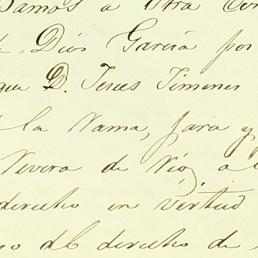 Damos a Otra Con
Dios García por
D. Jeses Jimenes
la Nama, Jara y
Nivera de Nío, a l
derecho en virtud
no del derecho de